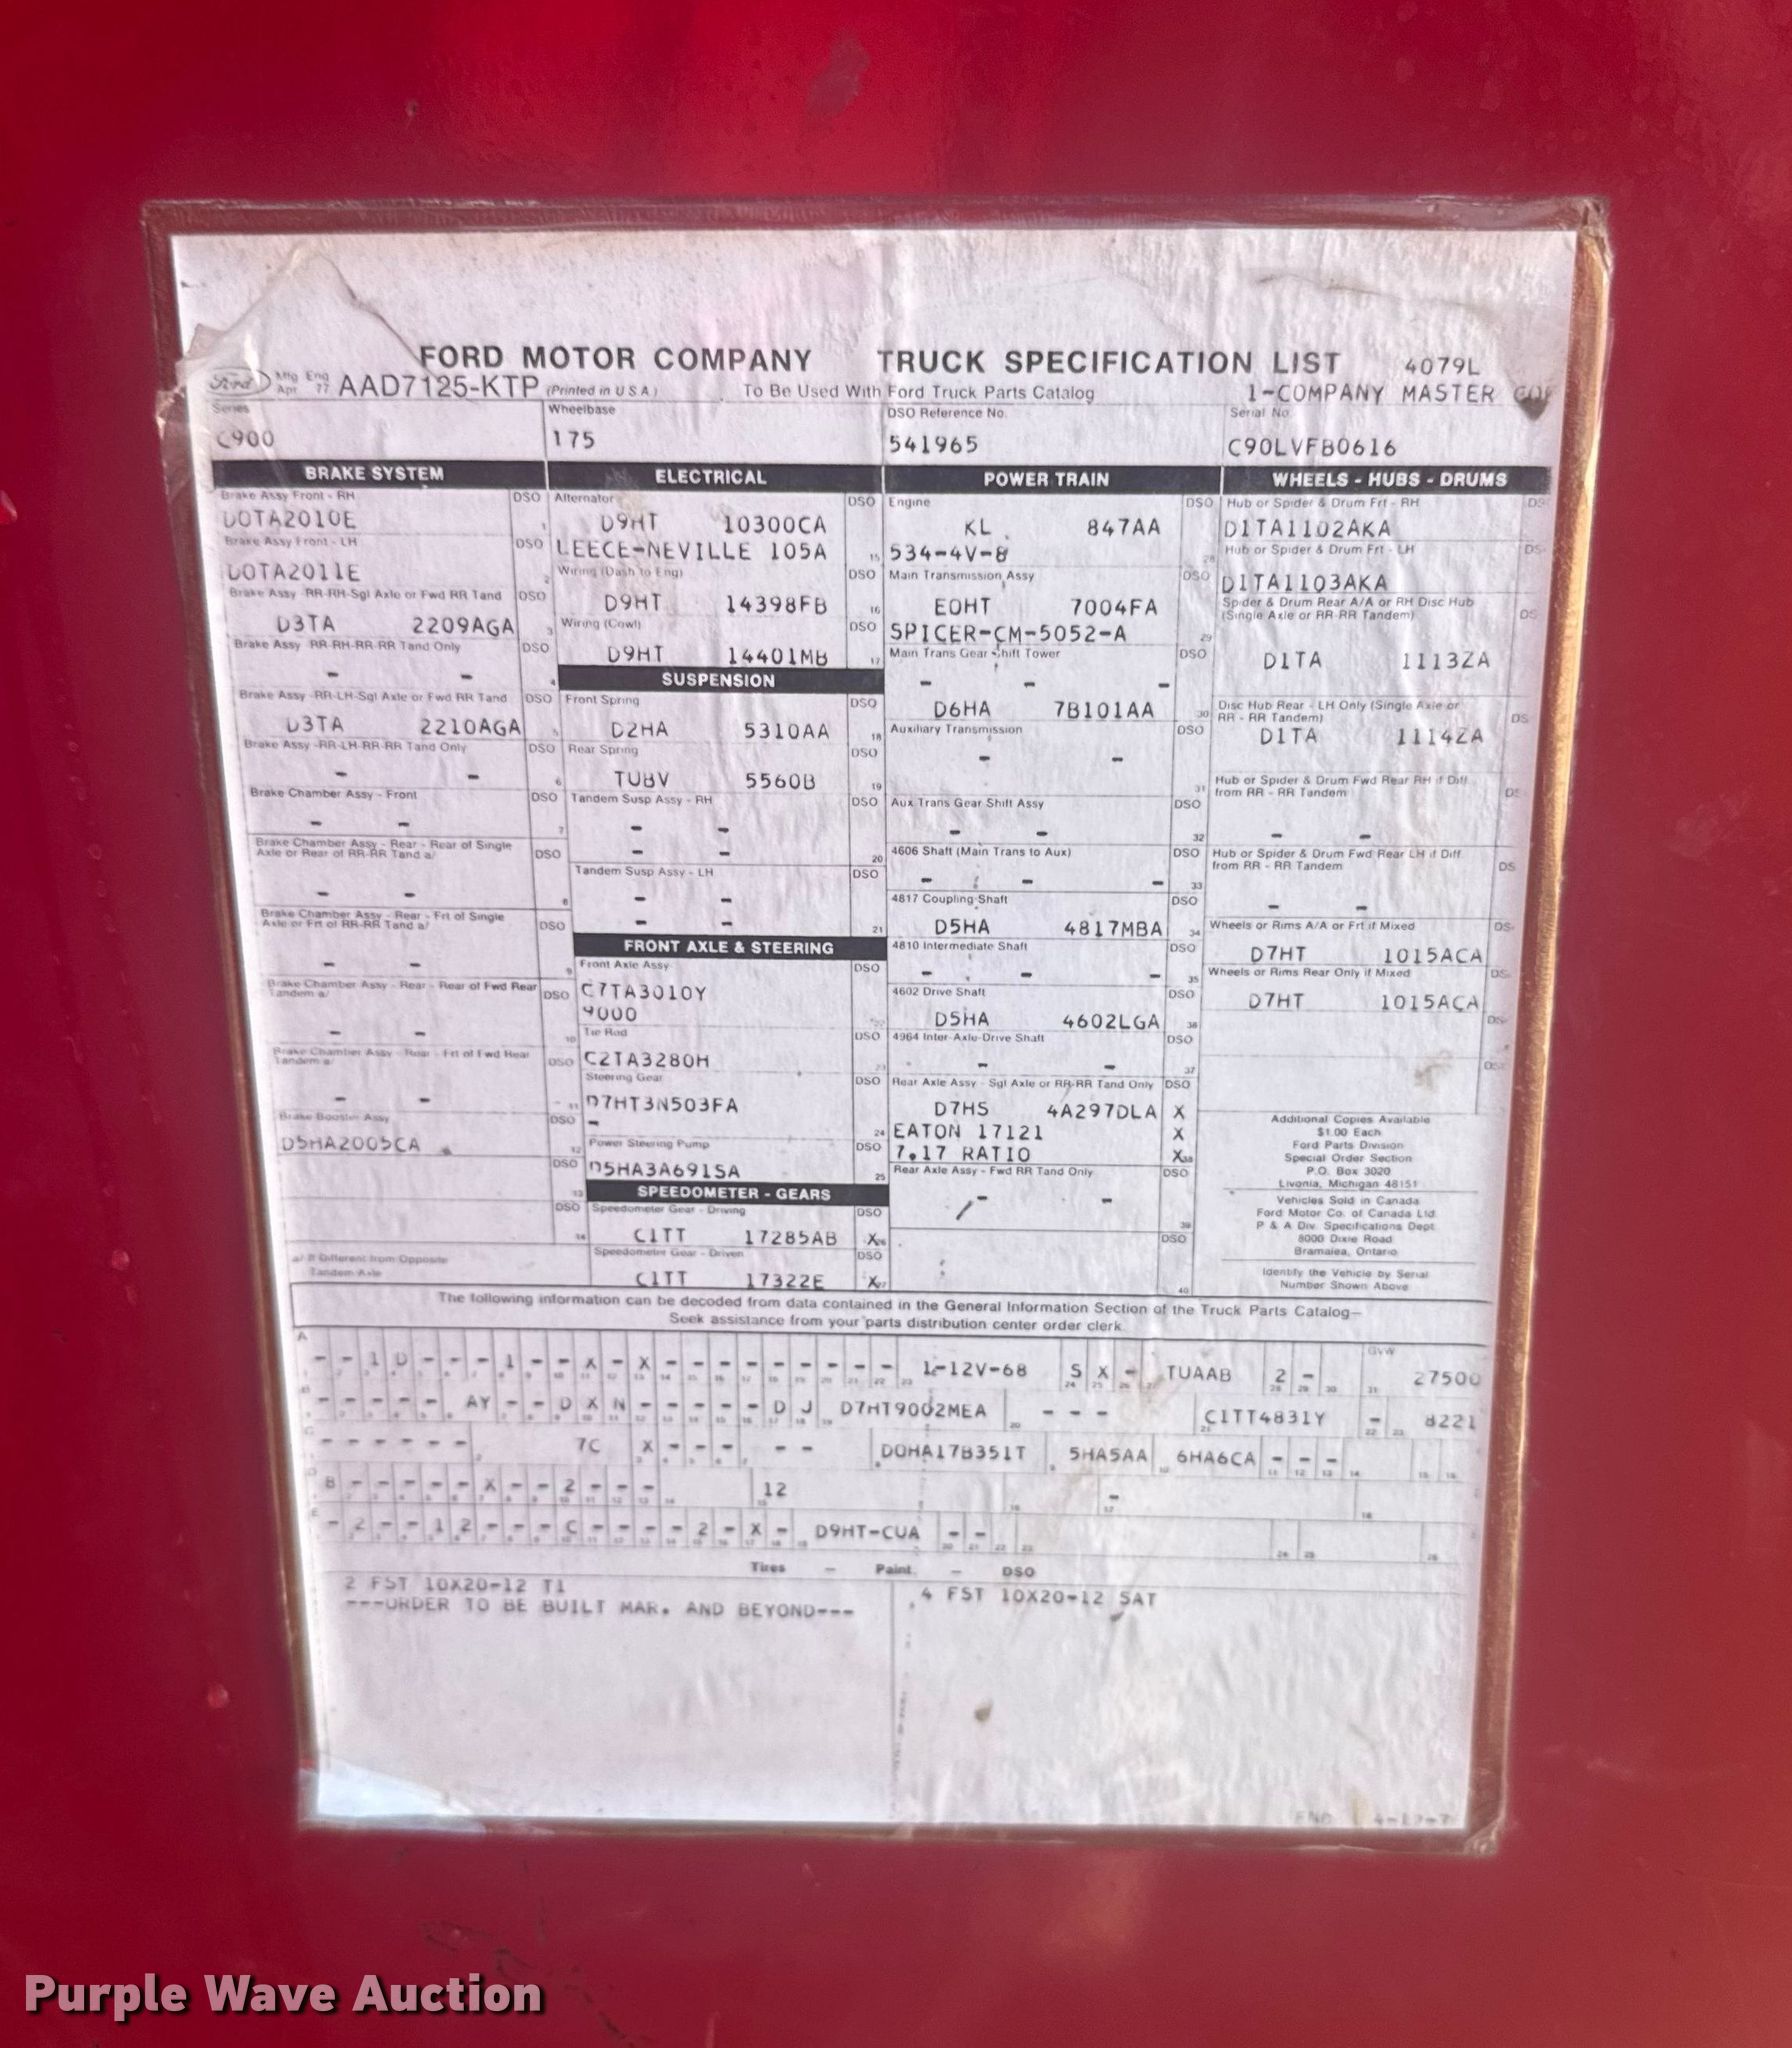 FORD MOTOR COMPANY TRUCK SPECIFICATION LIST 4079L
Ford Mfg Eng Apr 77 AAD7125-KTP (Printed in U.S.A.) To Be Used With Ford Truck Parts Catalog 1-COMPANY MASTER
Series Wheelbase DSO Reference No. Serial No.
C900 175 541965 C90LVFB0616
BRAKE SYSTEM
Brake Assy Front - RH DSO
DOTA2010E 1
Brake Assy Front - LH DSO
DOTA2011E 2
Brake Assy -RR-RH-Sgl Axle or Fwd RR Tand DSO
D3TA 2209AGA 3
Brake Assy RR-RH-RR-RR Tand Only DSO
- - 4
Brake Assy -RR-LH-Sgl Axle or Fwd RR Tand DSO
D3TA 2210AGA 5
Brake Assy -RR-LH-RR-RR Tand Only DSO
- - 6
Brake Chamber Assy - Front DSO
- - 7
Brake Chamber Assy - Rear - Rear of Single
Axle or Rear of RR-RR Tand a/ DSO
- - 8
Brake Chamber Assy - Rear - Frt of Single
Axle or Frt of RR-RR Tand a/ DSO
- - 9
Brake Chamber Assy - Rear - Rear of Fwd Rear
Tandem a/ DSO
- - 10
Brake Chamber Assy - Rear - Frt of Fwd Rear
Tandem a/ DSO
- - 11
Brake Booster Assy DSO
D5HA2005CA 12
DSO
13
DSO
14
a/ If Different from Opposite
Tandem Axle
ELECTRICAL
Alternator DSO
D9HT 10300CA
LEECE-NEVILLE 105A 15
Wiring (Dash to Eng) DSO
D9HT 14398FB 16
Wiring (Cowl) DSO
D9HT 14401MB 17
SUSPENSION
Front Spring DSO
D2HA 5310AA 18
Rear Spring DSO
TUBV 5560B 19
Tandem Susp Assy - RH DSO
- -
- - 20
Tandem Susp Assy - LH DSO
- -
- - 21
FRONT AXLE & STEERING
Front Axle Assy DSO
C7TA3010Y
9000
Tie Rod DSO
C2TA3280H
Steering Gear DSO
D7HT3N503FA
- 24
Power Steering Pump DSO
D5HA3A691SA 25
SPEEDOMETER - GEARS
Speedometer Gear - Driving DSO
C1TT 17285AB X26
Speedometer Gear - Driven DSO
C1TT 17322E X27
POWER TRAIN
Engine DSO
KL 847AA
534-4V-8 28
Main Transmission Assy DSO
EOHT 7004FA
SPICER-CM-5052-A 29
Main Trans Gear Shift Tower DSO
- - -
D6HA 7B101AA 30
Auxiliary Transmission DSO
- -
31
Aux Trans Gear Shift Assy DSO
- - 32
4606 Shaft (Main Trans to Aux) DSO
- - - 33
4817 Coupling Shaft DSO
D5HA 4817MBA 34
4810 Intermediate Shaft DSO
- - - 35
4602 Drive Shaft DSO
D5HA 4602LGA 36
4964 Inter-Axle-Drive Shaft DSO
- - 37
Rear Axle Assy - Sgl Axle or RR-RR Tand Only DSO
D7HS 4A297DLA X
EATON 17121 X
7.17 RATIO X38
Rear Axle Assy - Fwd RR Tand Only DSO
- - 39
DSO
40
WHEELS - HUBS - DRUMS
Hub or Spider & Drum Frt - RH DS
D1TA1102AKA
Hub or Spider & Drum Frt - LH DS
D1TA1103AKA
Spider & Drum Rear A/A or RH Disc Hub
(Single Axle or RR-RR Tandem) DS
D1TA 1113ZA
Disc Hub Rear - LH Only (Single Axle or
RR - RR Tandem) DS
D1TA 1114ZA
Hub or Spider & Drum Fwd Rear RH if Diff
from RR - RR Tandem DS
- -
Hub or Spider & Drum Fwd Rear LH if Diff
from RR - RR Tandem DS
- -
Wheels or Rims A/A or Frt if Mixed DS
D7HT 1015ACA
Wheels or Rims Rear Only if Mixed DS
D7HT 1015ACA
DS
DS
Additional Copies Available
$1.00 Each
Ford Parts Division
Special Order Section
P.O. Box 3020
Livonia, Michigan 48151
Vehicles Sold in Canada
Ford Motor Co. of Canada Ltd.
P & A Div. Specifications Dept
8000 Dixie Road
Bramalea, Ontario
Identify the Vehicle by Serial
Number Shown Above
The following information can be decoded from data contained in the General Information Section of the Truck Parts Catalog—
Seek assistance from your parts distribution center order clerk.
A - - 1 D - - - 1 - - X - X - - - - - - - - - 1-12V-68 S X - TUAAB 2 - GVW 27500
- - - - - - AY - - D X N - - - - - D J D7HT9002MEA - - - C1TT4831Y - 8221
- - - - - - 7C X - - - - - DOHA17B351T 5HA5AA 6HA6CA - - -
B - - - - - X - - 2 - - - 12 -
- 2 - - 1 2 - - - C - - - - 2 - X - D9HT-CUA - -
Tires - Paint - DSO
2 FST 10X20-12 T1 4 FST 10X20-12 SAT
---ORDER TO BE BUILT MAR. AND BEYOND---
Purple Wave Auction